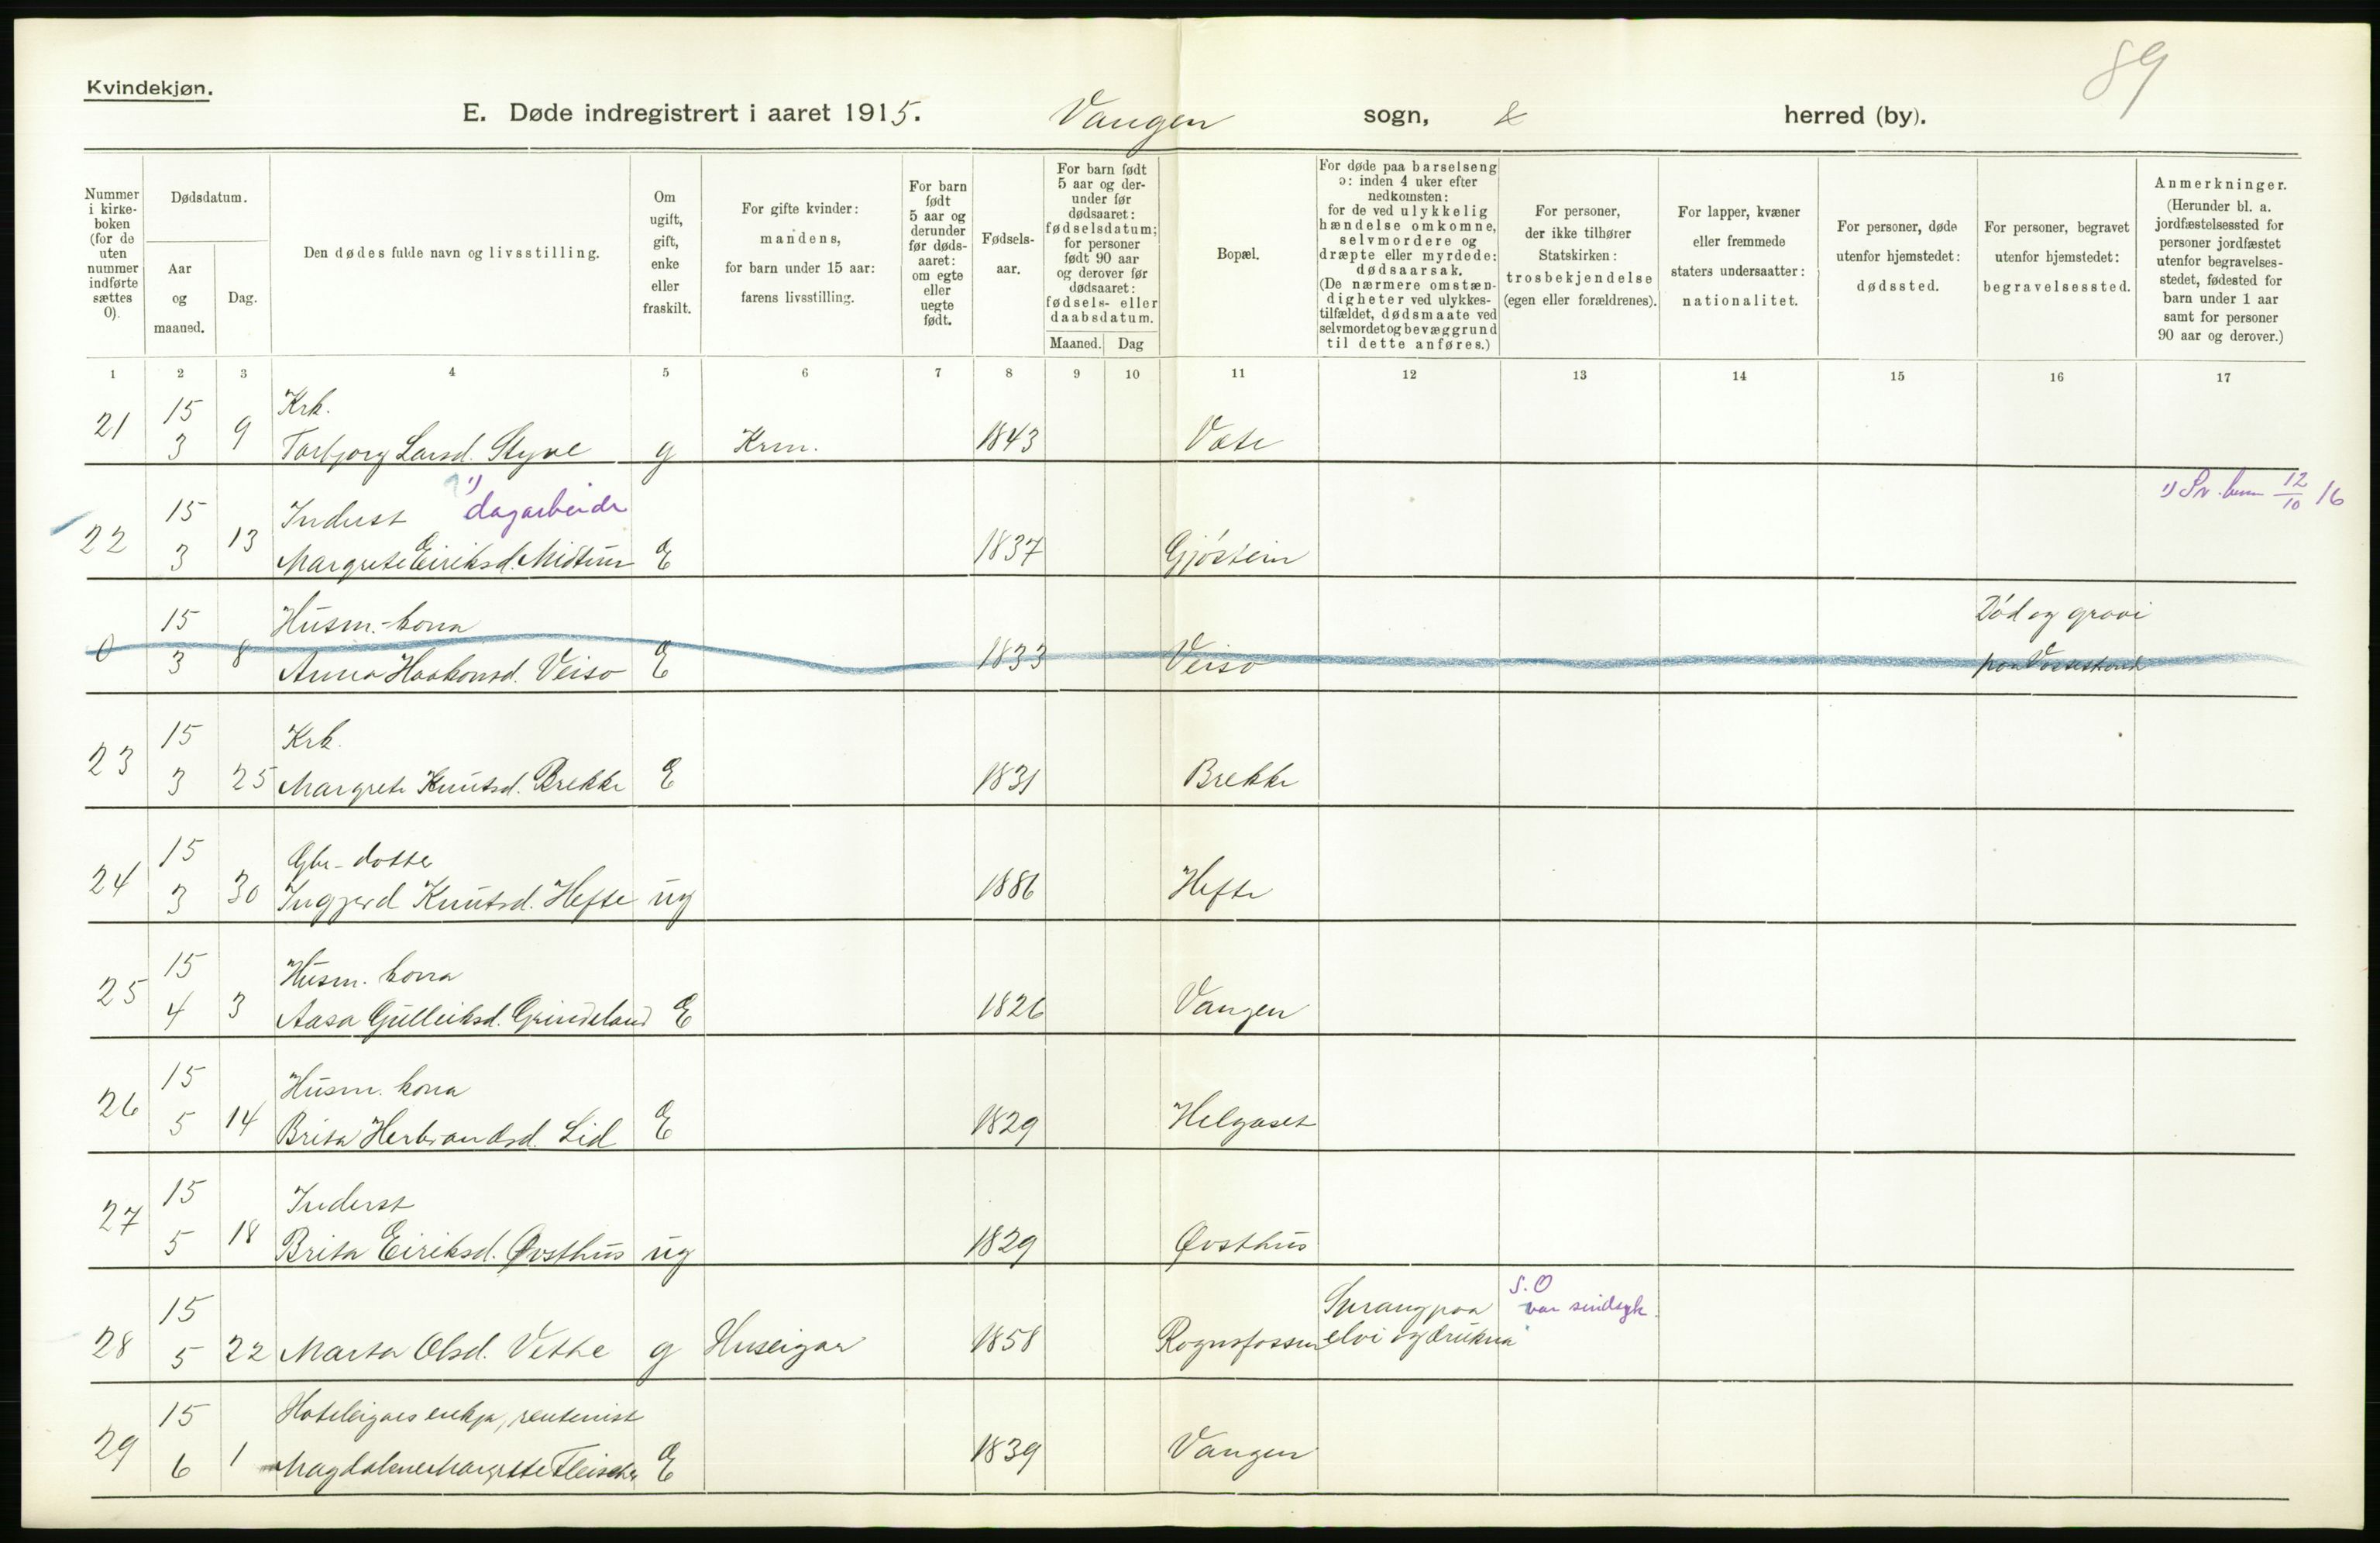 89
Kvindekjøn.
E. Døde indregistrert i aaret 1915. Vangen sogn, herred (by).
Nummer i kirke-boken (for de uten nummer indførte sættes 0).
Dødsdatum.
Aar og maaned.
Dag.
Den dødes fulde navn og livsstilling.
Om ugift, gift, enke eller fraskilt.
For gifte kvinder: mandens, for barn under 15 aar: farens livsstilling.
For barn født 5 aar og derunder før døds-aaret: om egte eller uegte født.
Fødsels-aar.
For barn født 5 aar og der-under før dødsaaret: fødselsdatum; for personer født 90 aar og derover før dødsaaret: fødsels- eller daabsdatum.
Maaned. Dag
Bopæl.
For døde paa barselseng ɔ: inden 4 uker efter nedkomsten: for de ved ulykkelig hændelse omkomne, selvmordere og dræpte eller myrdede: dødsaarsak. (De nærmere omstæn-digheter ved ulykkes-tilfældet, dødsmaate ved selvmordet og bevæggrund til dette anføres.)
For personer, der ikke tilhører Statskirken: trosbekjendelse (egen eller forældrenes).
For lapper, kvæner eller fremmede staters undersaatter: nationalitet.
For personer, døde utenfor hjemstedet: dødssted.
For personer, begravet utenfor hjemstedet: begravelsessted.
Anmerkninger. (Herunder bl. a. jordfæstelsessted for personer jordfæstet utenfor begravelses-stedet, fødested for barn under 1 aar samt for personer 90 aar og derover.)
1 2 3 4 5 6 7 8 9 10 11 12 13 14 15 16 17
15 Krk.
21 3 9 Torbjorg Larsd. Styve g Krm. 1843 Vete
15 Inderst 1) dagarbeide 1) Sv. 12/10 16
22 3 13 Margrete Eiriksd. Midtun E 1837 Gjøstein
15 Husm.-kona Død og gravi
0 3 8 Anna Haakonsd. Veiso E 1833 Veiso paa Vossestrand
15 Krk.
23 3 25 Margrete Knutsd. Brekke E 1831 Brekke
15 Gbr-dotter
24 3 30 Ingjerd Knutsd. Hefte ug 1886 Hefte
15 Husm. kona
25 4 3 Aasa Gulleiksd. Grindeland E 1826 Vangen
15 Husm. kona
26 5 14 Brita Herbrandsd. Lid E 1829 Helgaset
15 Inderst
27 5 18 Brita Eiriksd. Øvsthus ug 1829 Øvsthus
15 Sprang paa S.O var sindsyk.
28 5 22 Marta Olsd. Vethe g Huseigar 1858 Rognsfossen elvi og drukna
15 Hoteleigars enkja, rentenist
29 6 1 Magdalene Margrethe Fleischer E 1839 Vangen